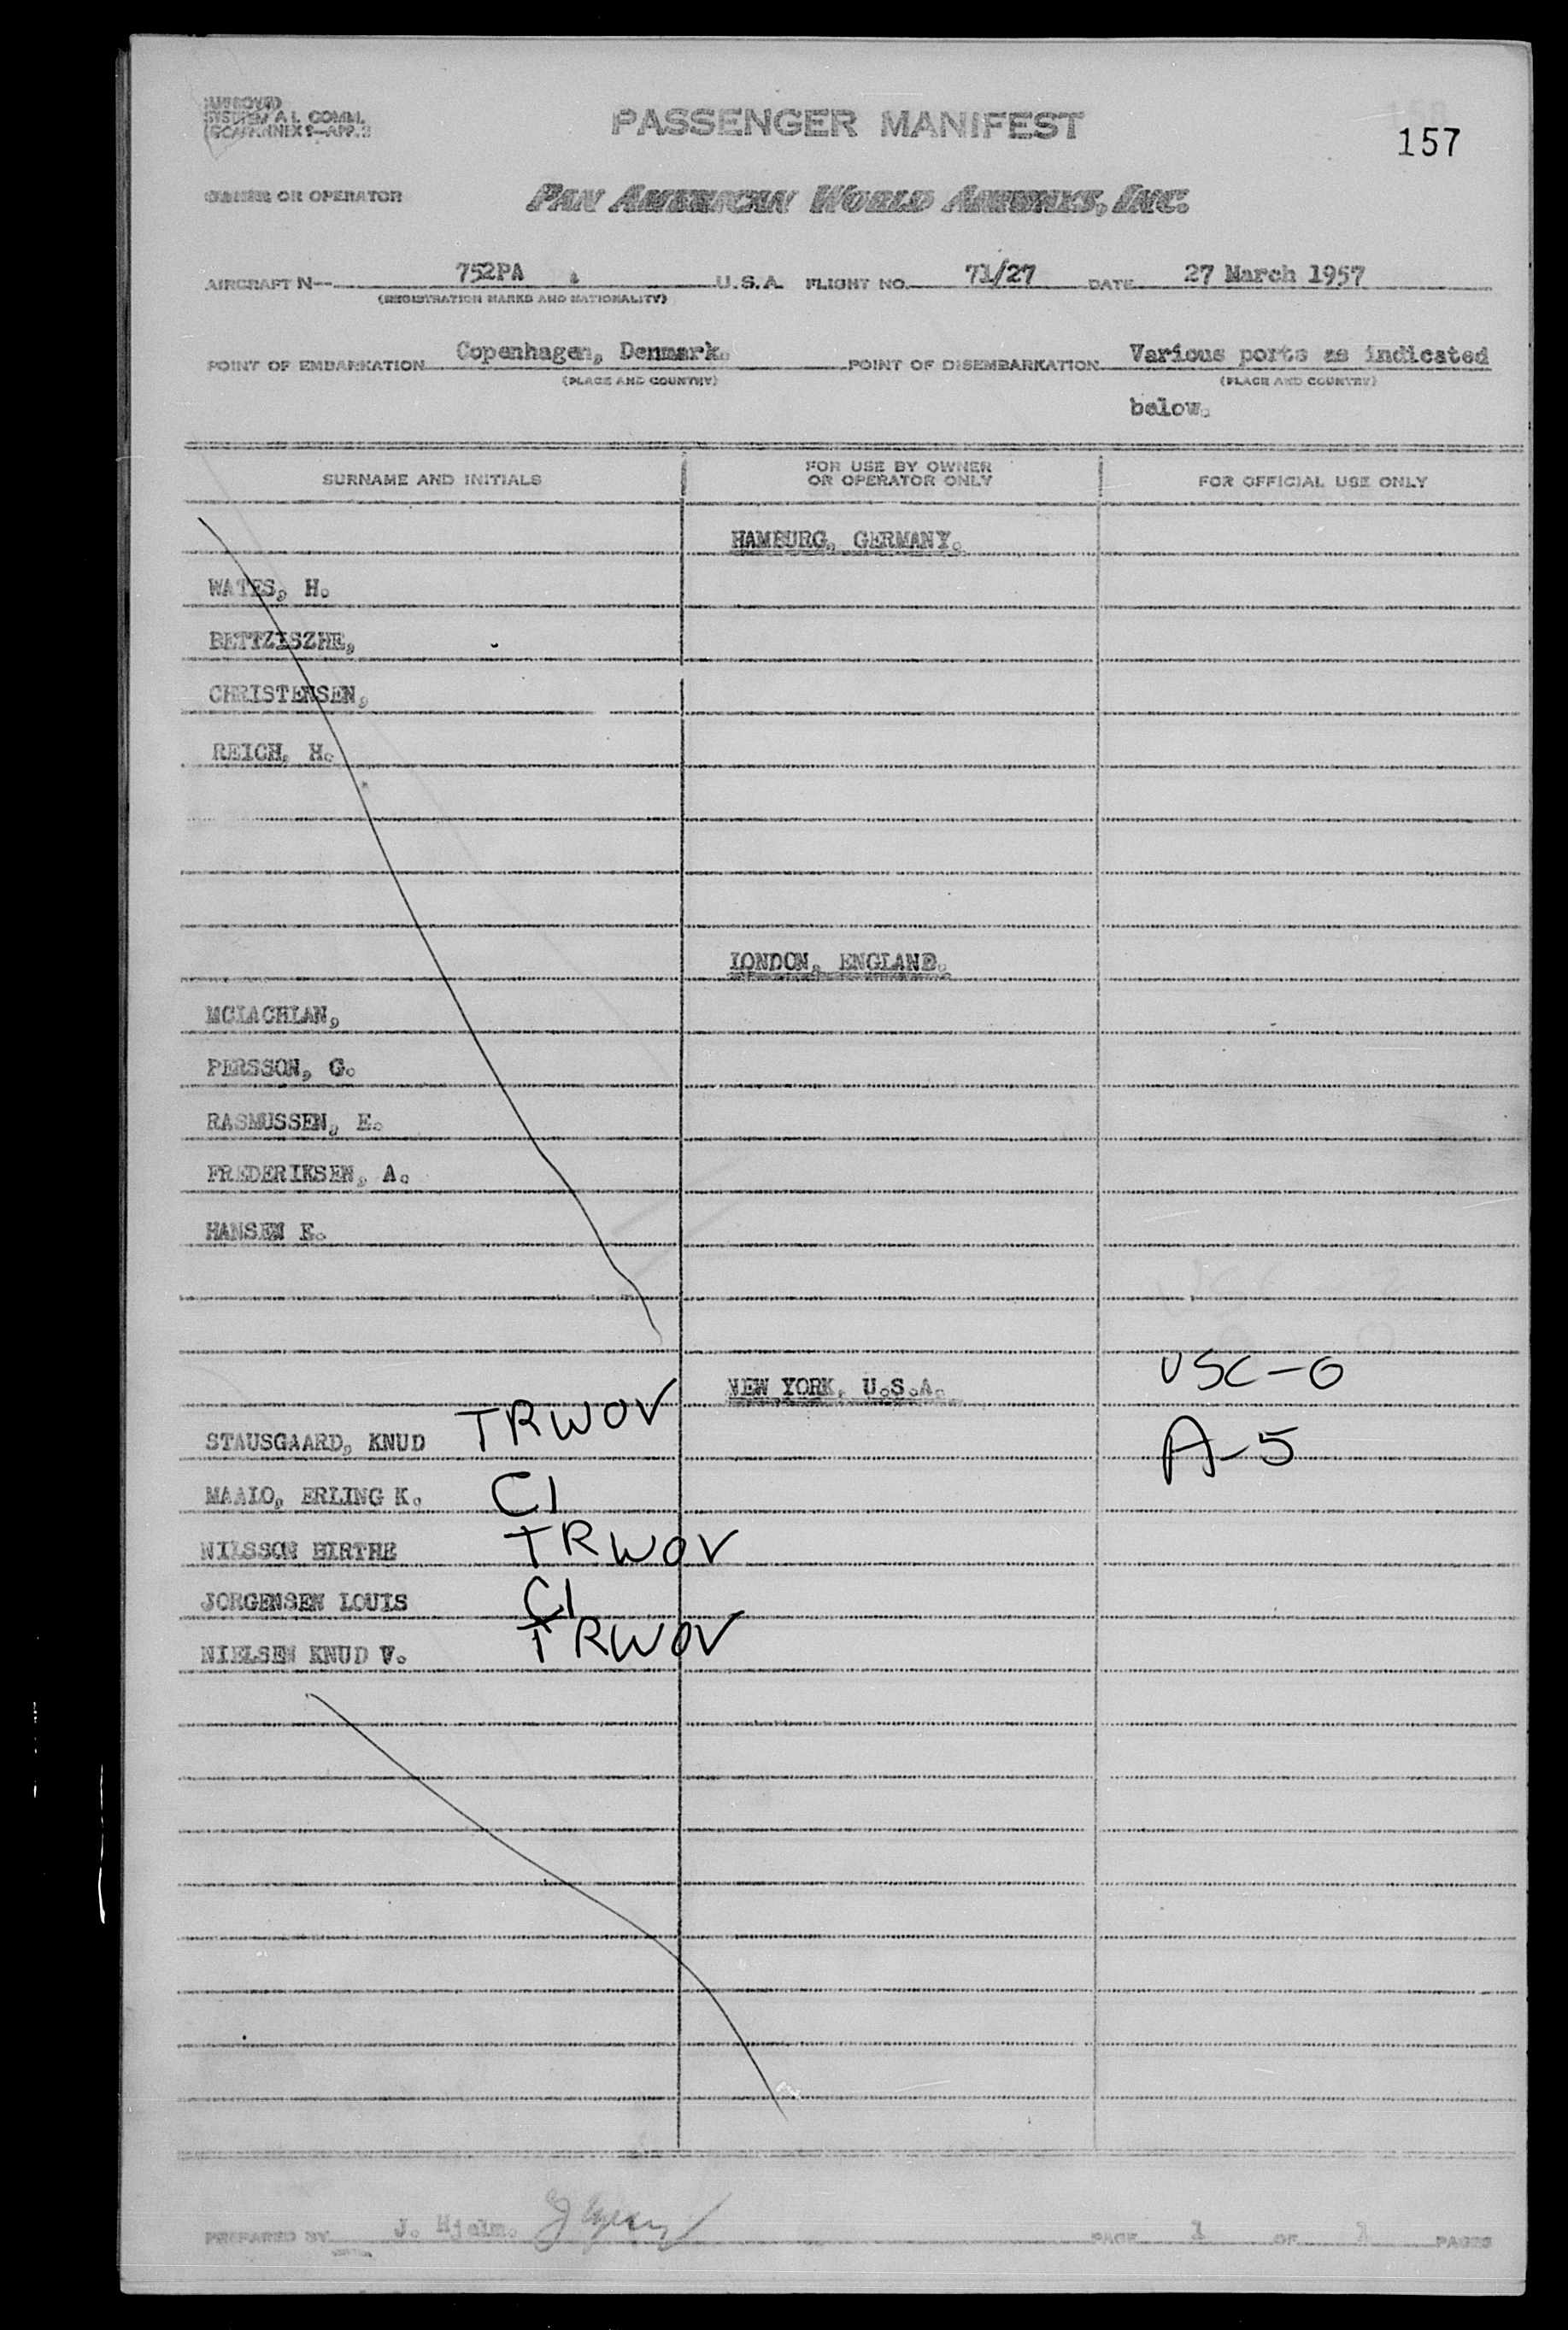 APPROVED
SYSTEM A L COMM.
(ICAO ANNEX 9—APP. 2
PASSENGER MANIFEST
157
OWNER OR OPERATOR
PAN AMERICAN WORLD AIRWAYS, INC.
AIRCRAFT N-- 752PA U.S.A. FLIGHT NO. 71/27 DATE 27 March 1957
(REGISTRATION MARKS AND NATIONALITY)
POINT OF EMBARKATION Copenhagen, Denmark. POINT OF DISEMBARKATION Various ports as indicated
(PLACE AND COUNTRY) (PLACE AND COUNTRY)
below.
SURNAME AND INITIALS
FOR USE BY OWNER
OR OPERATOR ONLY
FOR OFFICIAL USE ONLY
HAMBURG, GERMANY.
WATES, H.
BETTZISZHE,
CHRISTENSEN,
REICH, H.
LONDON, ENGLAND.
MCLACHLAN,
PERSSON, G.
RASMUSSEN, E.
FREDERIKSEN, A.
HANSEN E.
USC-0
NEW YORK, U.S.A.
STAUSGAARD, KNUD TRWOV A-5
MAALO, ERLING K. CI
NILSSON BIRTHE TRWOV
JORGENSEN LOUIS CI
NIELSEN KNUD V. TRWOV
PREPARED BY J. Hjelm. PAGE 1 OF 1 PAGES